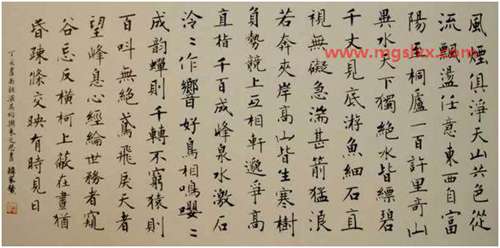 www.mgslxx.com
風煙俱淨天山共色從
流飄蕩任意東西自富
陽至桐廬一百許里奇山
異水天下獨絕水皆縹碧
千丈見底游魚細石直
視無礙急湍甚箭猛浪
若奔夾岸高山皆生寒樹
負勢競上互相軒邈爭高
直指千百成峰泉水激石
泠々作響好鳥相鳴嚶々
成韻蟬則千轉不窮猿則
百叫無絕鳶飛戾天者
望峰息心經綸世務者窺
谷忘反橫柯上蔽在晝猶
昏疎條交映有時見日